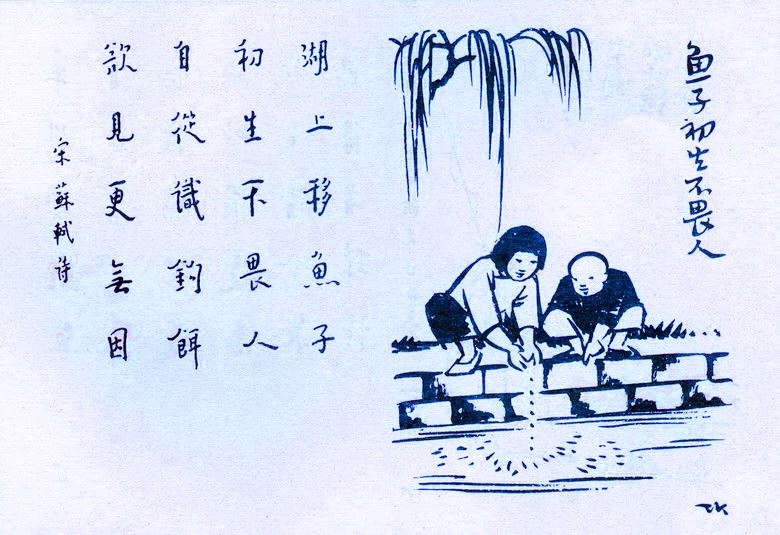 魚子初生不畏人
湖上移魚子
初生不畏人
自從識鉤餌
欲見更無因
宋 蘇軾詩
TK